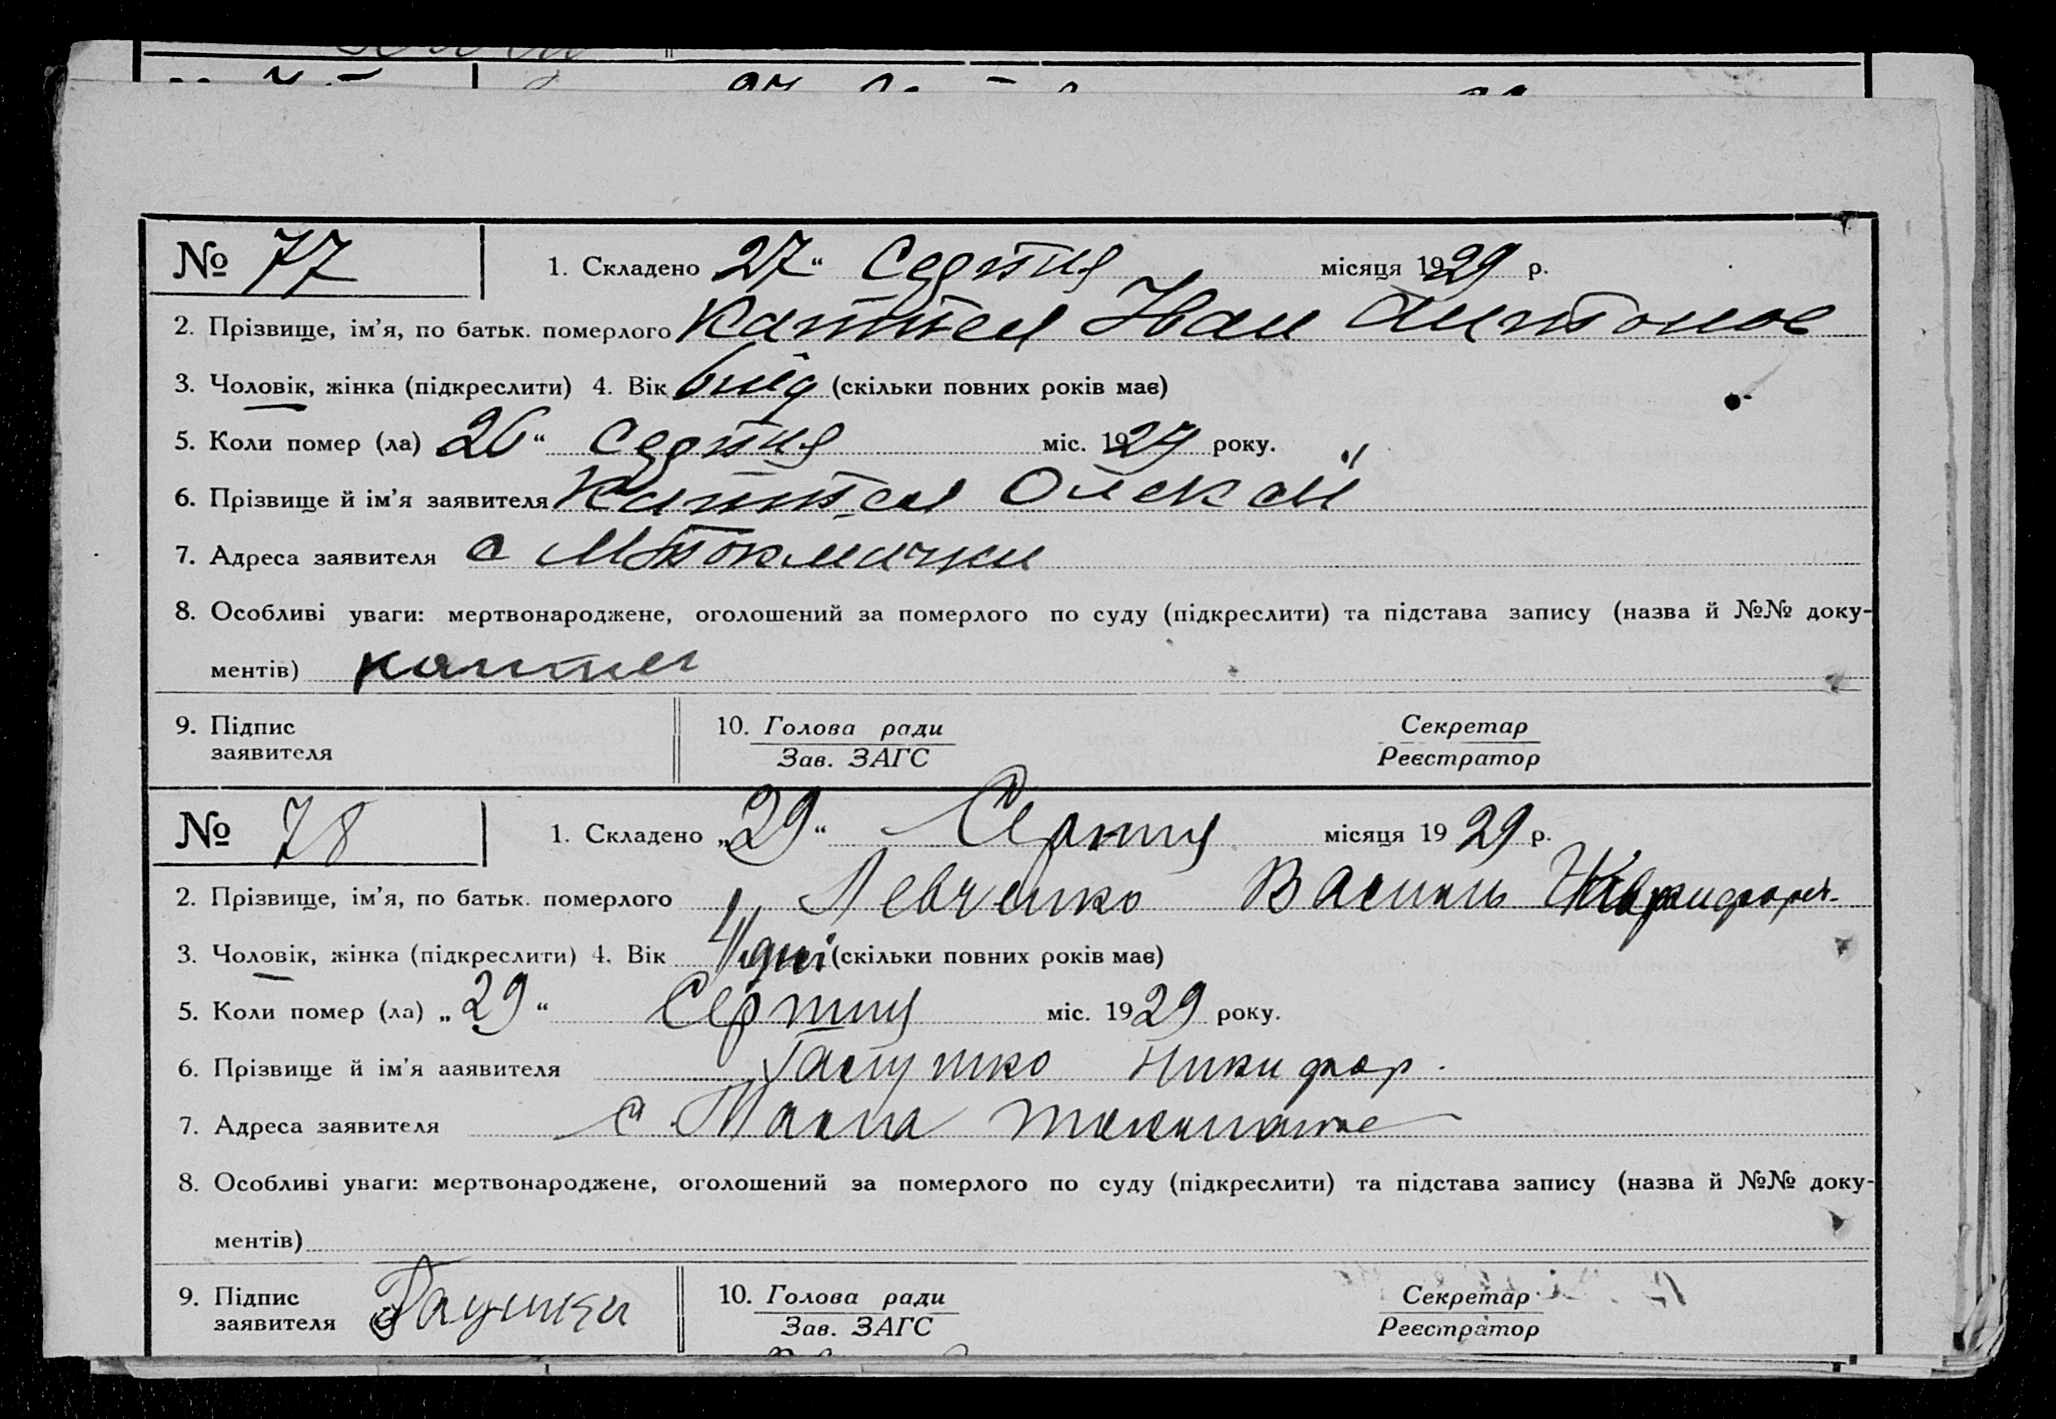 № 77 1. Складено 27" Серпня місяця 1929 р.
2. Прізвище, ім'я, по батьк. померлого Каптел Иван Антонов
3. Чоловік, жінка (підкреслити) 4. Вік (скільки повних років має)
5. Коли помер (ла) 26" Серпня міс. 1929 року.
6. Прізвище й ім'я заявителя Каптел Олексій
7. Адреса заявителя с МТокмачки
8. Особливі уваги: мертвонароджене, оголошений за померлого по суду (підкреслити) та підстава запису (назва й №№ доку-
ментів)
9. Підпис 10. Голова ради Секретар
заявителя Зав. ЗАГС Реєстратор
№ 78 1. Складено „29" Серпня місяця 1929 р.
2. Прізвище, ім'я, по батьк. померлого Левченко Василь
3. Чоловік, жінка (підкреслити) 4. Вік дні (скільки повних років має)
5. Коли помер (ла) „29" Серпня міс. 1929 року.
6. Прізвище й ім'я ааявителя Никифор.
7. Адреса заявителя с Мала
8. Особливі уваги: мертвонароджене, оголошений за померлого по суду (підкреслити) та підстава запису (назва й №№ доку-
ментів)
9. Підпис 10. Голова ради Секретар
заявителя Зав. ЗАГС Реєстратор